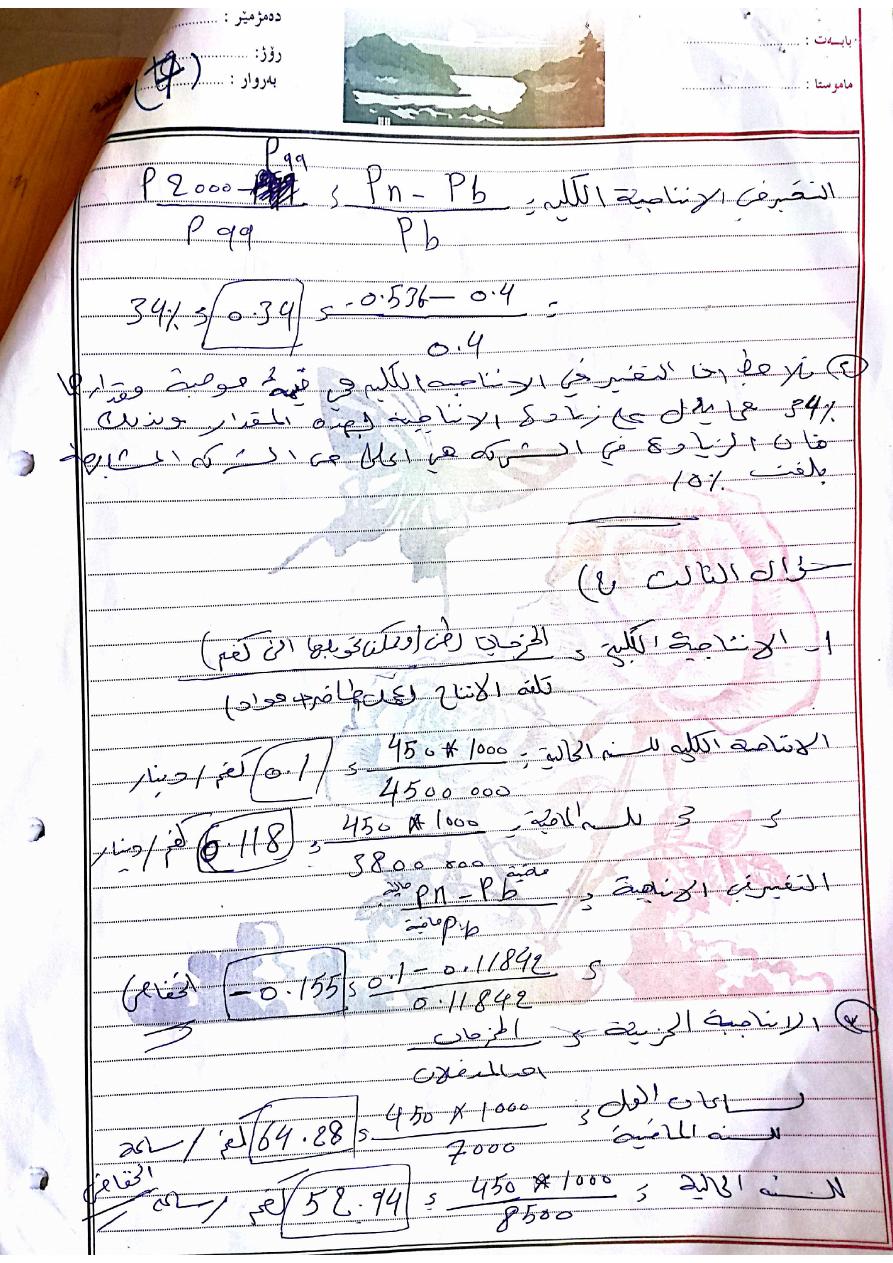 بابەت :
دەمژمێر :
رۆژ:
ماموستا :
بەروار :
(4)
التغير في الانتاجية الكلية = Pn - Pb / Pb = P2000 - P99 / P99
= 0.536 - 0.4 / 0.4 = 0.34 = 34%
② نلاحظ ان التغير في الانتاجية الكلية هي قيمة موجبة مقدارها
34% مما يدل على زيادة الانتاجية بهذه المقدار وبذلك
فان الزيادة في الشركة هي اعلى من الشركة المشابهة
بلغت 15%
سؤال الثالث ع)
1- الانتاجية الكلية = المخرجات (طن) (ويمكن تحويلها الى كغم) / تكلفة الانتاج (عمل + مواد)
الانتاجية الكلية للسنة الحالية = 450 * 1000 / 4500 000 = 0.1 كغم / دينار
= = للسنة الماضية = 450 * 1000 / 3800 000 = 0.118 كغم / دينار
التغير في الانتاجية = Pn حالية - Pb ماضية / Pb ماضية
= 0.1 - 0.11842 / 0.11842 = -0.155 انخفاض
② الانتاجية الجزئية = المخرجات / احد المدخلات
ساعات العمل للسنة الماضية = 450 * 1000 / 7000 = 64.28 كغم / ساعة
للسنة الحالية = 450 * 1000 / 8500 = 52.94 كغم / ساعة انخفاض